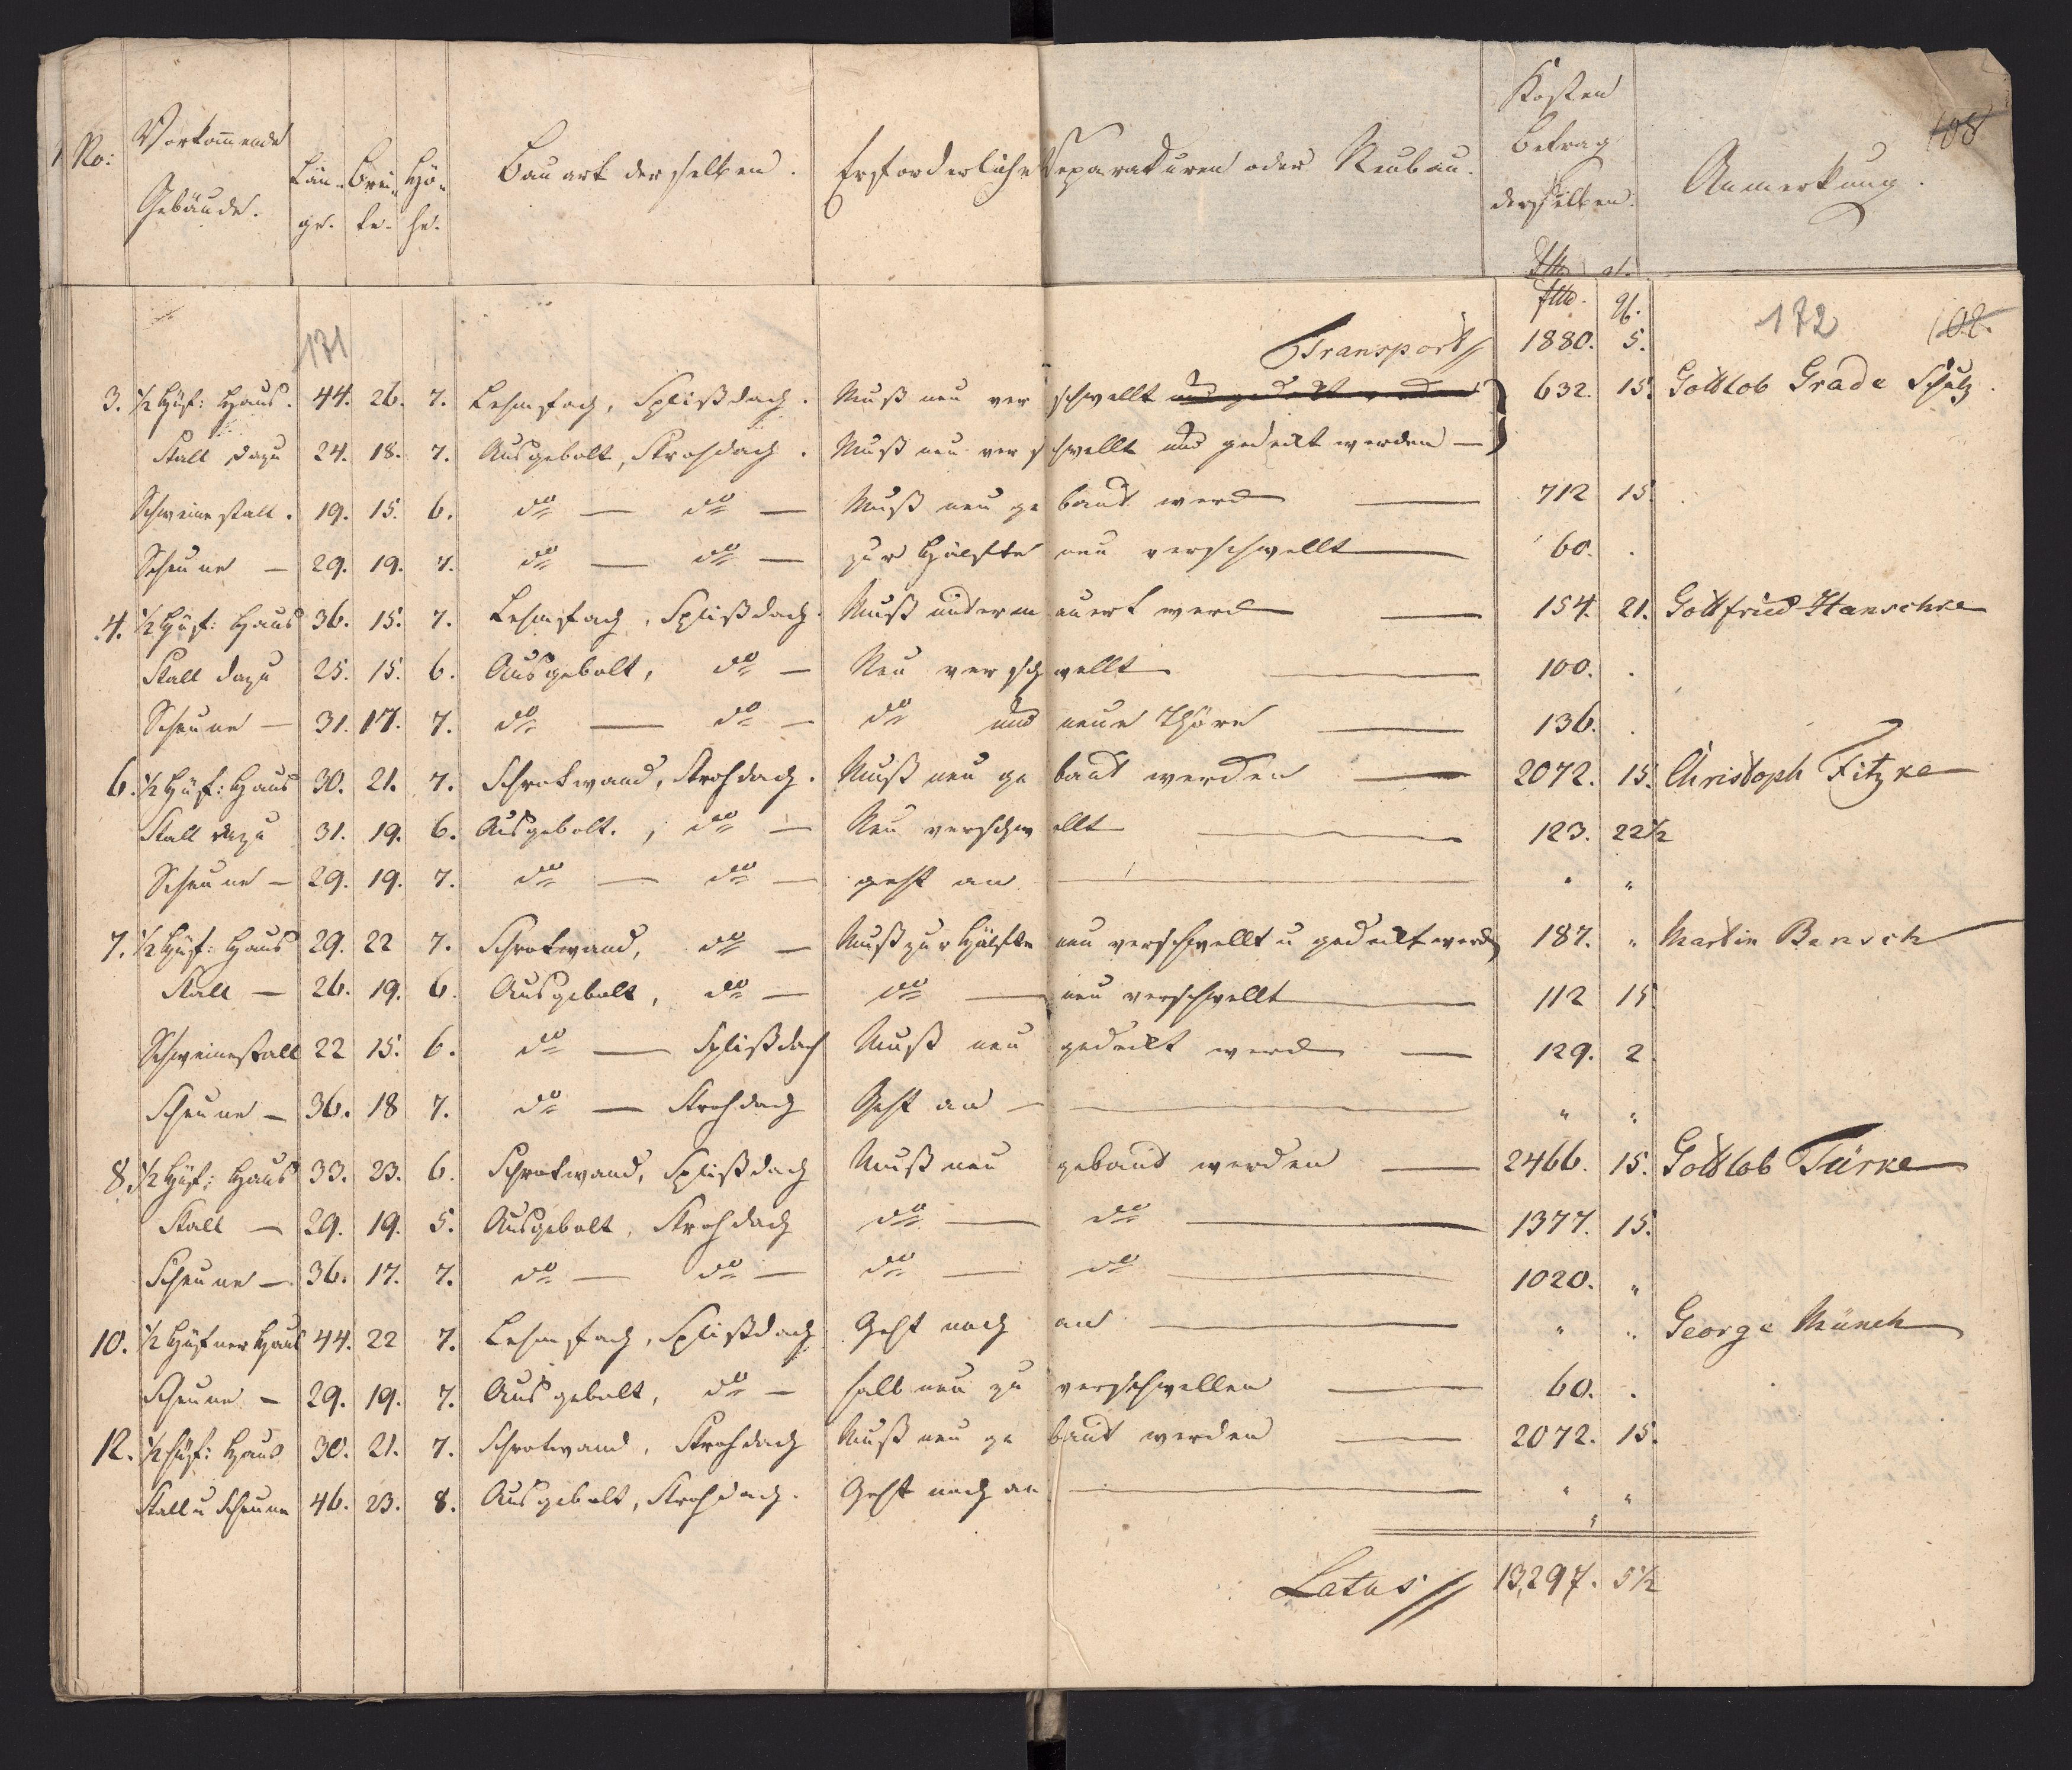 No: Vorkommende Gebäude. Län- ge. Brei- te. Hö- he. Bauart derselben. Erforderliche Reparaturen oder Neubau. Kosten Betrag derselben. Anmerkung. 108
rtl. gl.
rtl. gl.
171 172 102
Transport 1880. 5.
3. ½ Hüf: Haus. 44. 26. 7. Lehmfach, Splißdach. Muß neu verschwellt und gedeckt werden 632. 15. Gottlob Grade Schulz.
Stall dazu 24. 18. 7. Ausgebolt, Strohdach. Muß neu verschwellt und gedeckt werden —
Schweinestall. 19. 15. 6. do — do — Muß neu gebaut werd — 712 15.
Scheune — 29. 19. 7. do — do — zur Hälfte neu verschwellt — 60. .
4. ½ Hüf: Haus 36. 15. 7. Lehmfach, Splißdach. Muß untermauert werd — 154. 21. Gottfried Hanschke
Stall dazu 25. 15. 6. Ausgebolt, do — Neu verschwellt — 100. .
Scheune — 31. 17. 7. do — do — do und neue Thöre — 136. .
6. ½ Hüf: Haus 30. 21. 7. Schrotwand, Strohdach. Muß neu gebaut werden — 2072. 15. Christoph Fitzke
Stall dazu 31. 19. 6. Ausgebolt., do — Neu verschwellt — 123. 22½
Scheune — 29. 19. 7. do — do — geht an — " "
7. ½ Hüf: Haus 29. 22 7. Schrotwand, do — Muß zur Hälfte neu verschwellt u gedeckt werd 187. " Martin Bensch
Stall — 26. 19. 6. Ausgebolt, do — do — neu verschwellt — 112 15
Schweinestall 22 15. 6. do — Splißdach Muß neu gedeckt werd — 129. 2.
Scheune — 36. 18 7. do — Strohdach Geht an — " "
8. ½ Hüf: Haus 33. 23. 6. Schrotwand, Splißdach Muß neu gebaut werden — 2466. 15. Gottlob Türke
Stall — 29. 19. 5. Ausgebolt, Strohdach do — do — 1377. 15.
Scheune — 36. 17. 7. do — do — do — do — 1020. "
10. ½ Hüfner Haus 44. 22 7. Lehmfach, Splißdach Geht noch an — " " George Münch
Scheune — 29. 19. 7. Ausgebolt, do — halb neu zu verschwellen — 60. .
12. ½ Hüf: Haus 30. 21. 7. Schrotwand, Strohdach Muß neu gebaut werden — 2072. 15.
Stall u Scheune 46. 23. 8. Ausgebolt, Strohdach. Geht noch an — " "
Latus 13,297. 5½